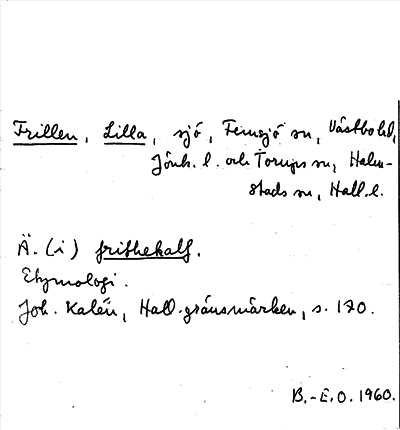 Frillen, Lilla, sjö, Femsjö sn, Västbo hd,
Jönk. l. och Torups sn, Halm-
stads sn, Hall. l.
Ä. (i) frithekalf.
Etymologi.
Joh. Kalén, Hall. gränsmärken, s. 170.
B.-E.O. 1960.